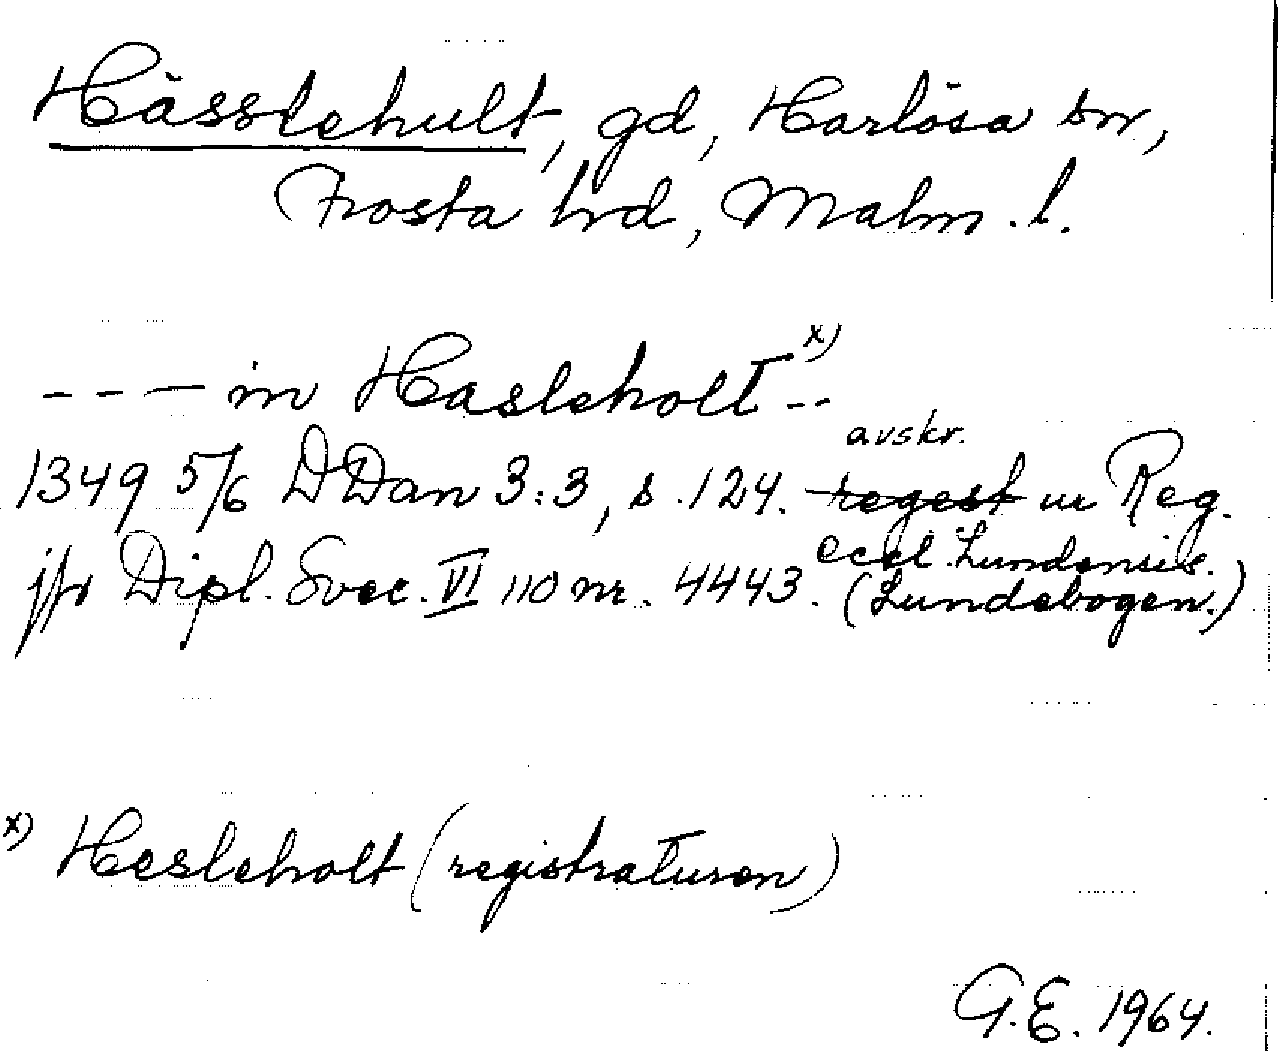 Hässlehult, gd, Harlösa sn,
Frosta hrd, Malm. l.
- - — in Hasleholt x) --
1349 5/6 DDan 3:3, s. 124. regest avskr. ur Reg.
eccl. Lundensis.
jfr Dipl. Svec. VI 110 nr. 4443. (Lundebogen.)
x) Hesleholt (registraturen)
G.E. 1964.